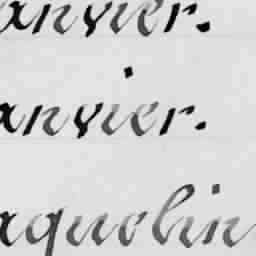 anvier.
anvier.
aquelin